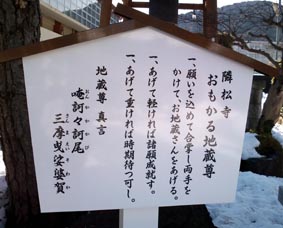 隣松寺
おもかる地蔵尊
一、願いを込めて合掌し両手を
かけて、お地蔵さんをあげる。
一、あげて軽ければ諸願成就す。
一、あげて重ければ時期待つ可し。
地蔵尊 真言
唵訶々訶尾
三摩曳娑婆賀